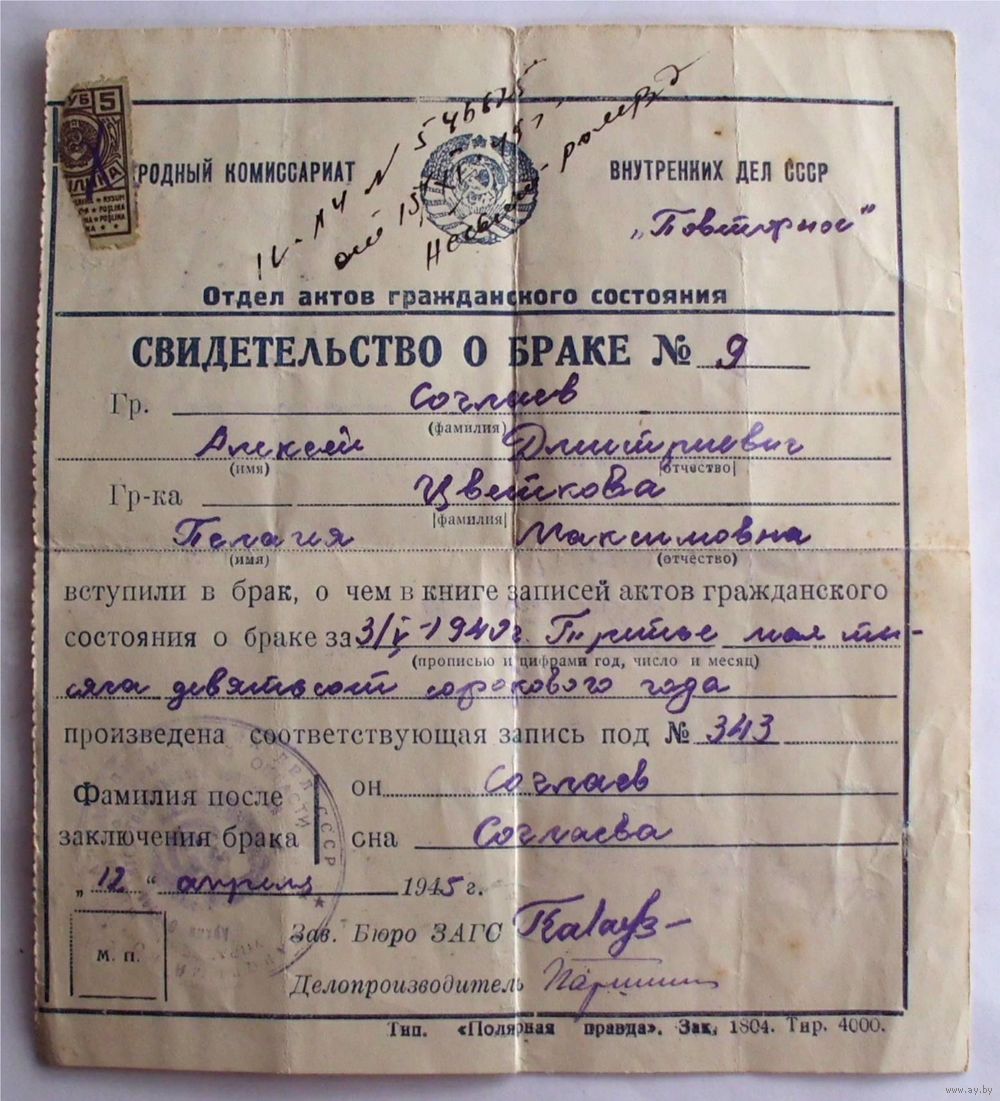 5
НАРОДНЫЙ КОМИССАРИАТ
ВНУТРЕННИХ ДЕЛ СССР
IV-ЛЧ № 546625
"Повторное"
Отдел актов гражданского состояния
СВИДЕТЕЛЬСТВО О БРАКЕ № 9
Гр. Соглаев
(фамилия)
Алексей Дмитриевич
(имя) (отчество)
Гр-ка Цветкова
(фамилия)
Пелагия Максимовна
(имя) (отчество)
вступили в брак, о чем в книге записей актов гражданского
состояния о браке за 3/V-1940г. Третье мая ты-
(прописью и цифрами год, число и месяц)
сяча девятьсот сорокового года
произведена соответствующая запись под № 343
Фамилия после
заключения брака
он Соглаев
она Соглаева
"12" апреля 1945 г.
Зав. Бюро ЗАГС
М. П.
Делопроизводитель
Тип. «Полярная правда». Зак. 1804. Тир. 4000.
www.ay.by